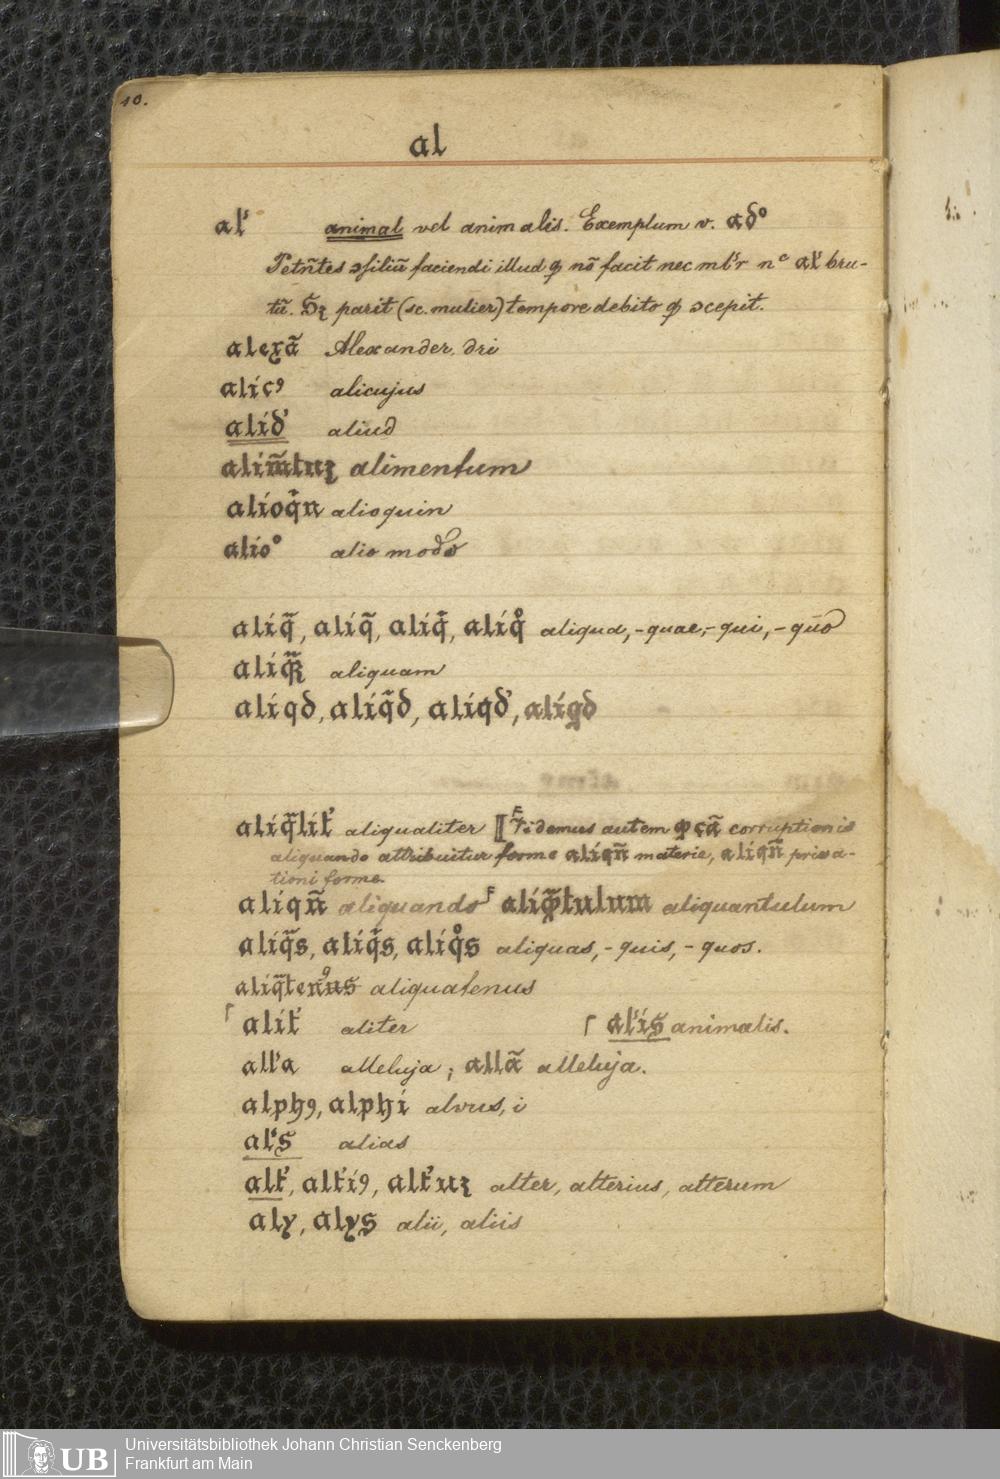 10.
al
al's animal vel animalis. Exemplum v. adº
Petñtes ↄſiliũ faciendi illud ꝙ nõ facit nec ml'r nᶜ al' bru-
tũ. parit (sc. mulier) tempore debito ꝙ ↄcepit.
alexã Alexander, dri
alicꝰ alicujus
alid' aliud
alim̃tuꝫ alimentum
alioq̇n alioquin
alioº alio modo
aliq̃, aliq̃, aliq̇, aliq̊ aliqua, -quae, -qui, -quo
aliquam
aliqd, aliq̇d, aliqd', aliqd
aliq̃lit' aliqualiter videmus autem corruptionis
aliquando attribuitur forme aliqñ materie, aliqñ priva-
tioni forme.
aliqñ aliquando aliꝙ̃tulum aliquantulum
aliq̃s, aliq̇s, aliq̊s aliquas, -quis, -quos.
aliq̃tenꝰus aliquatenus
alit' aliter al'is animalis.
all'a alleluja; allã alleluja.
alphꝰ, alphi alvus, i
al's alias
alt', alt'iꝰ, alt'uꝫ alter, alterius, alterum
aly, alys alii, aliis
UB
Universitätsbibliothek Johann Christian Senckenberg
Frankfurt am Main